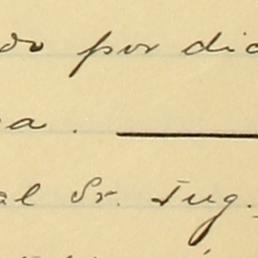 do por dic
a.
al Sr. Ing.